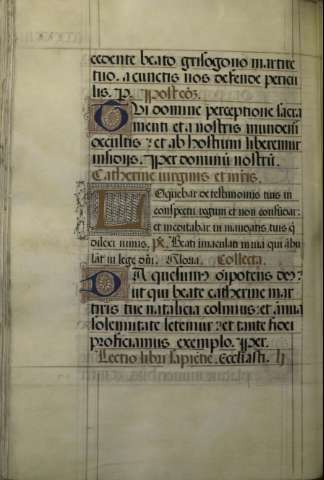 cedente beato grisogono martire
tuo. a cunctis nos defende pericu
lis. P. Postcōo.
Ui domine perceptione sacra
menti et a nostris mundemur
occultis : et ab hostium liberemur
insidijs. Per dominū nostrū.
Catherine virginis et mris.
Loquebar de testimonijs tuis in
conspectu regum et non confūdar:
et meditabar in mandatis tuis q̄
dilexi nimis. ps. Beati immaculati in via qui ābu
lāt in lege dn̄i. Gloria. Collecta.
Da quesumus oīpotens deus :
ut qui beate catherine mar
tiris tue natalicia colimus : et annua
solemnitate letemur : et tante fidei
proficiamus exemplo. Per.
Lectio libri sapiētie. Ecclīasti. li